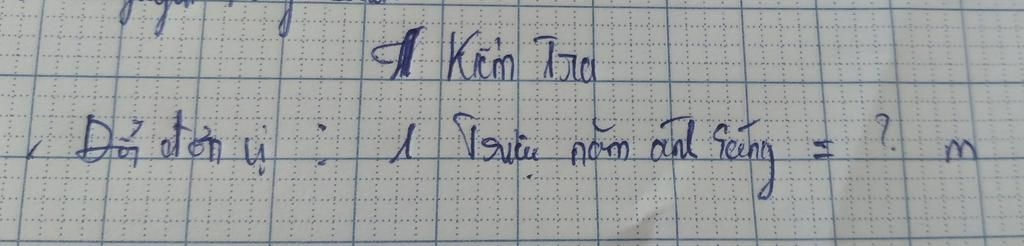 Kiểm Tra
Đổi đơn vị : 1 Triệu năm ánh sáng = ? m